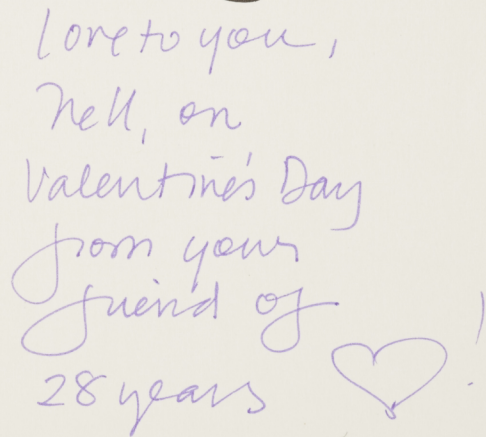 Love to you,
Nell, on
Valentine's Day
from your
friend of
28 years !